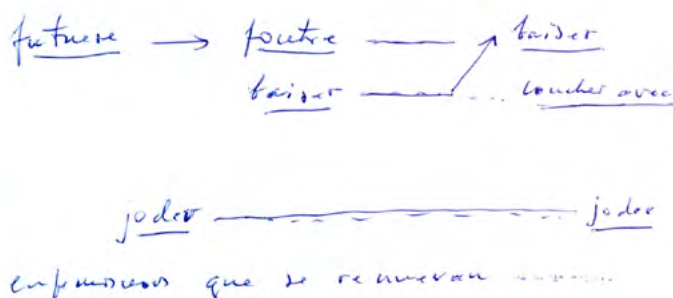 futuere → foutre — baiser
baiser — ... coucher avec
joder — joder
eufemismos que se renuevan ........